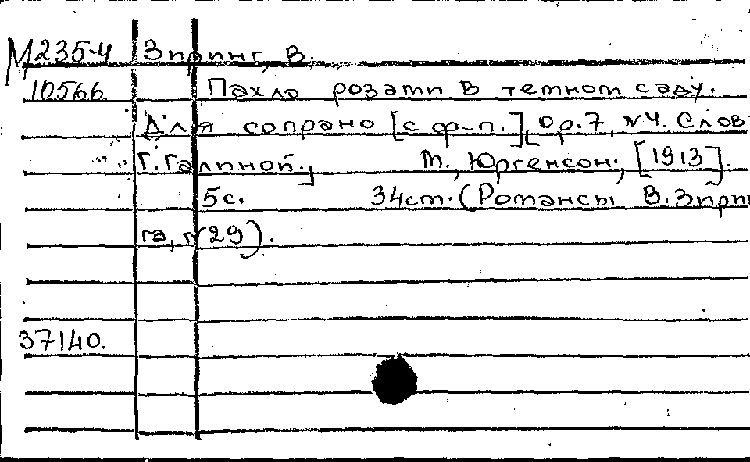 М235-4 Зиринг, В.
10566 Пахло розами в темном саду.
Для сопрано [с ф-п.], Ор.7, №4. Слов
Г. Галиной.] М., Юргенсон, [1913].
5с. 34см. (Романсы В. Зирин
га, №29).
37140.